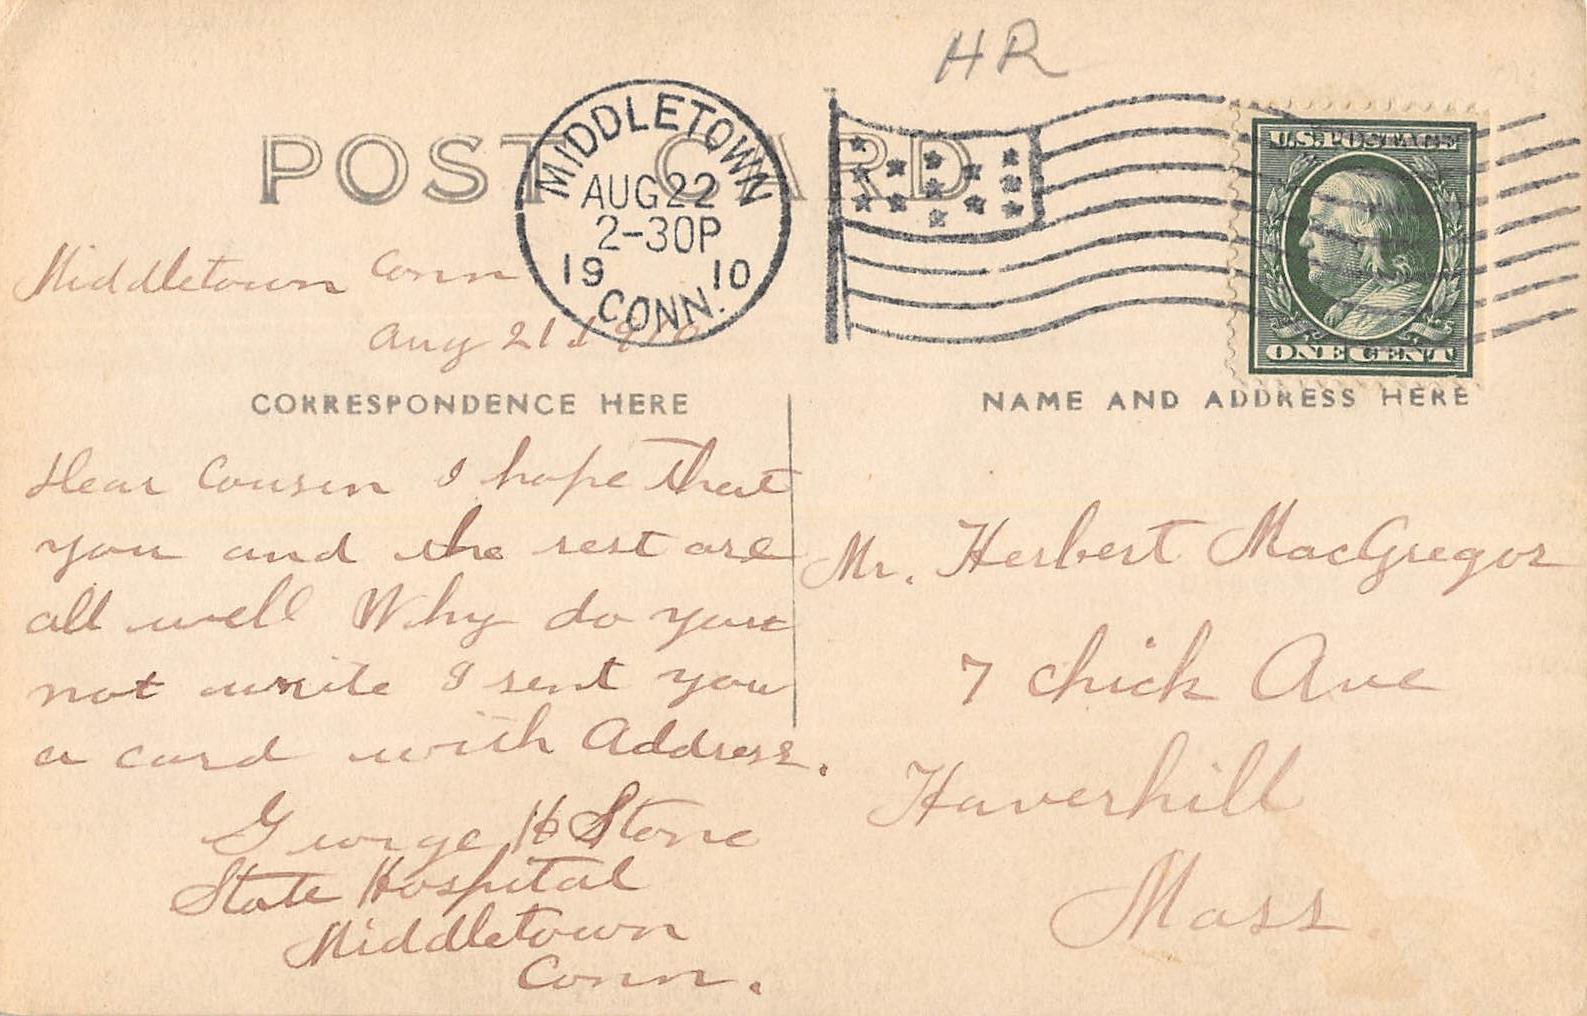 HR
POST CARD
MIDDLETOWN
AUG 22
2-30P
1910
CONN.
U.S. POSTAGE
ONE CENT
Middletown Conn
Aug 21 1910
CORRESPONDENCE HERE
NAME AND ADDRESS HERE
Dear Cousin I hope that
you and the rest are
all well Why do you
not write I sent you
a card with Address.
George H Stone
State Hospital
Middletown
Conn.
Mr. Herbert MacGregor
7 Chick Ave
Haverhill
Mass.